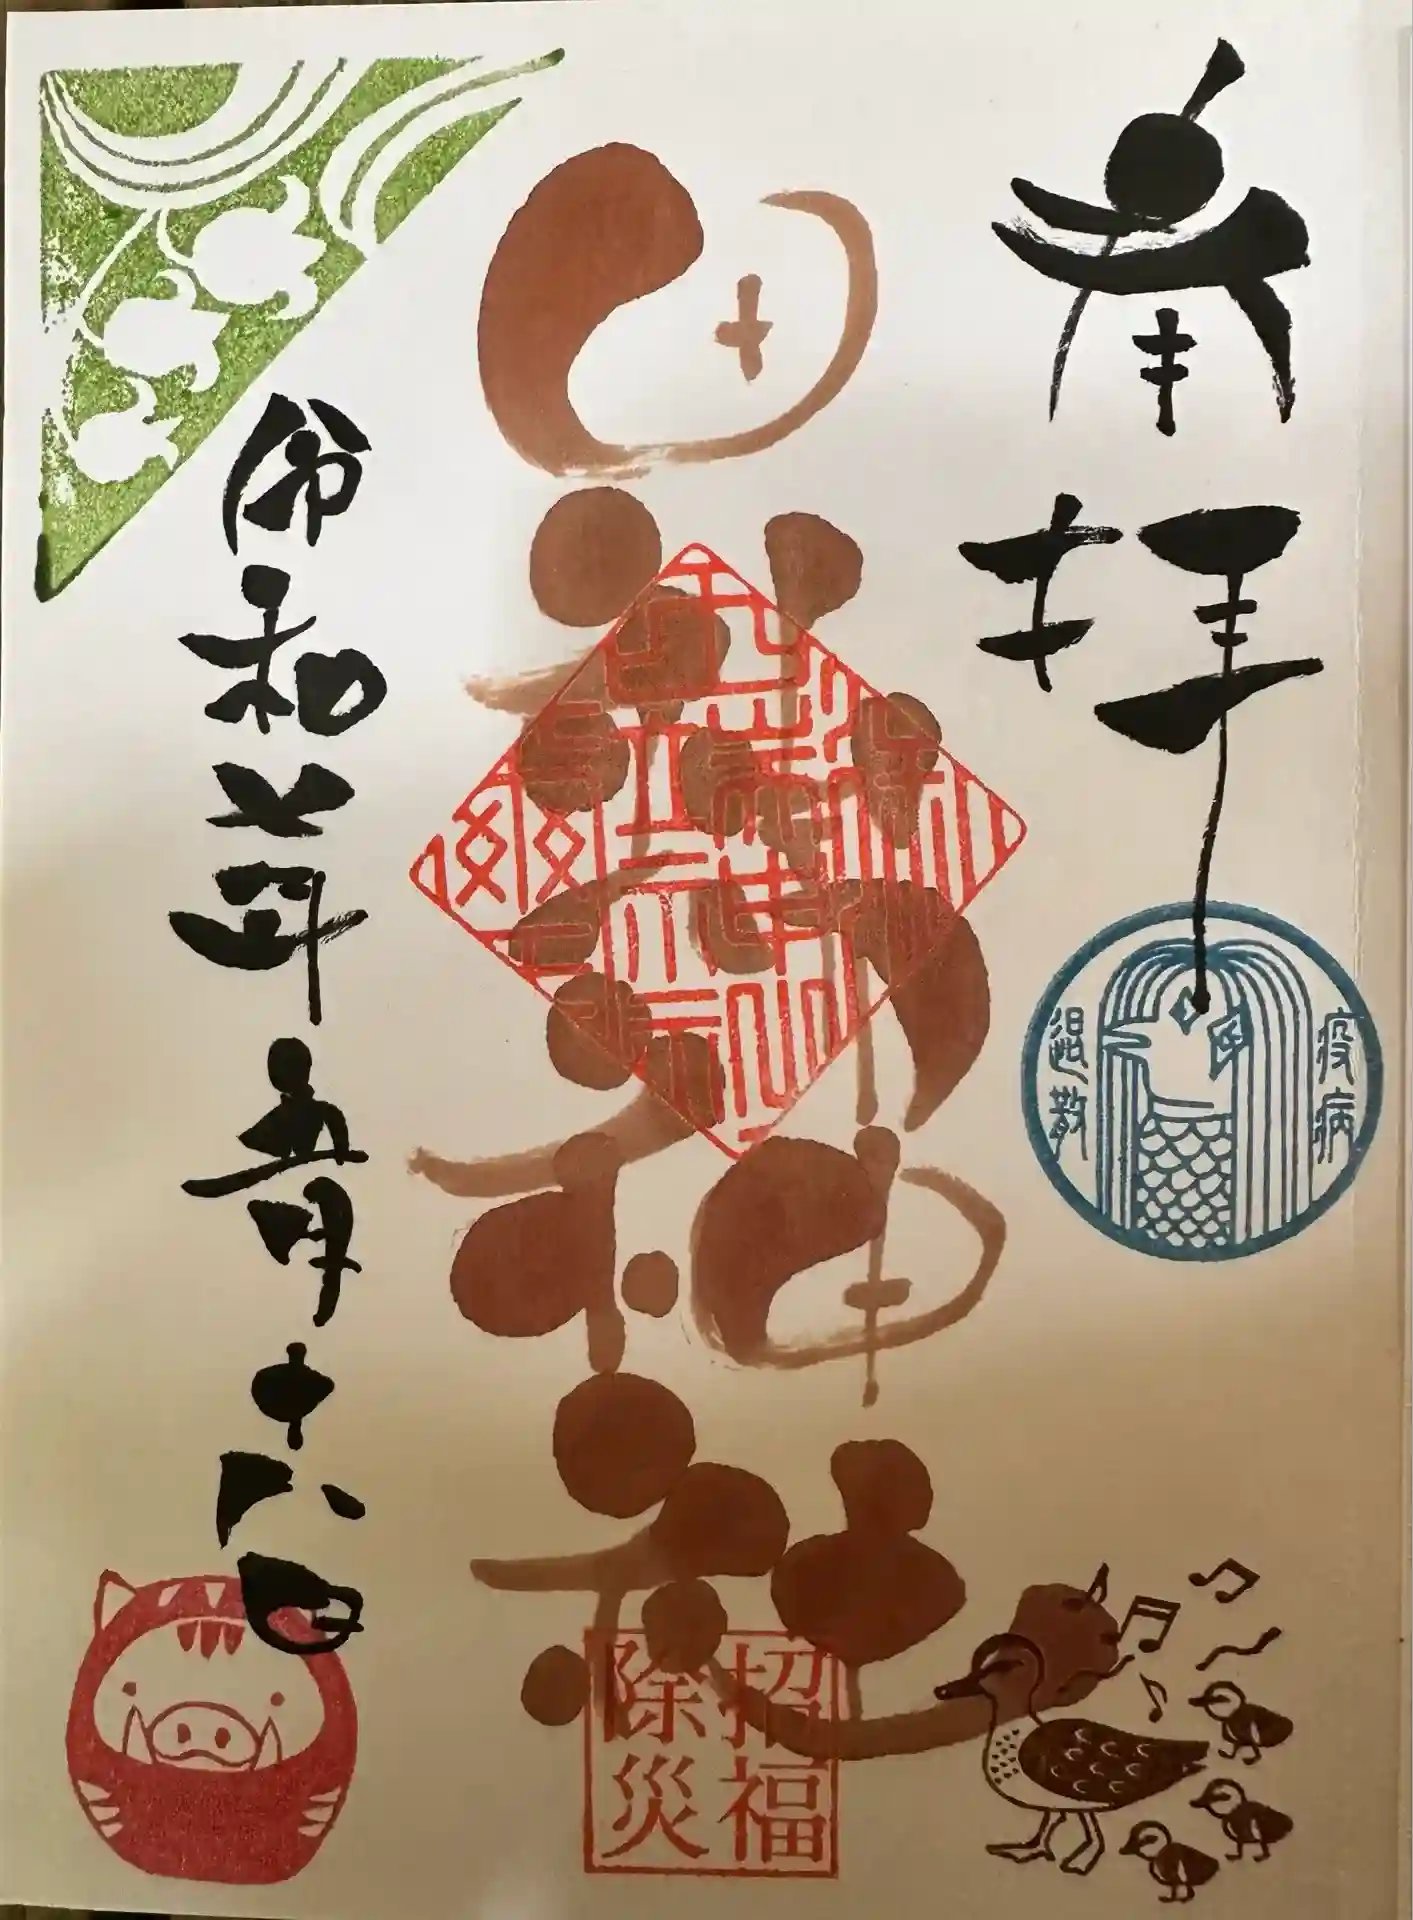 奉拝
疫病
退散
田無神社
招福
除災
令和七年五月十八日